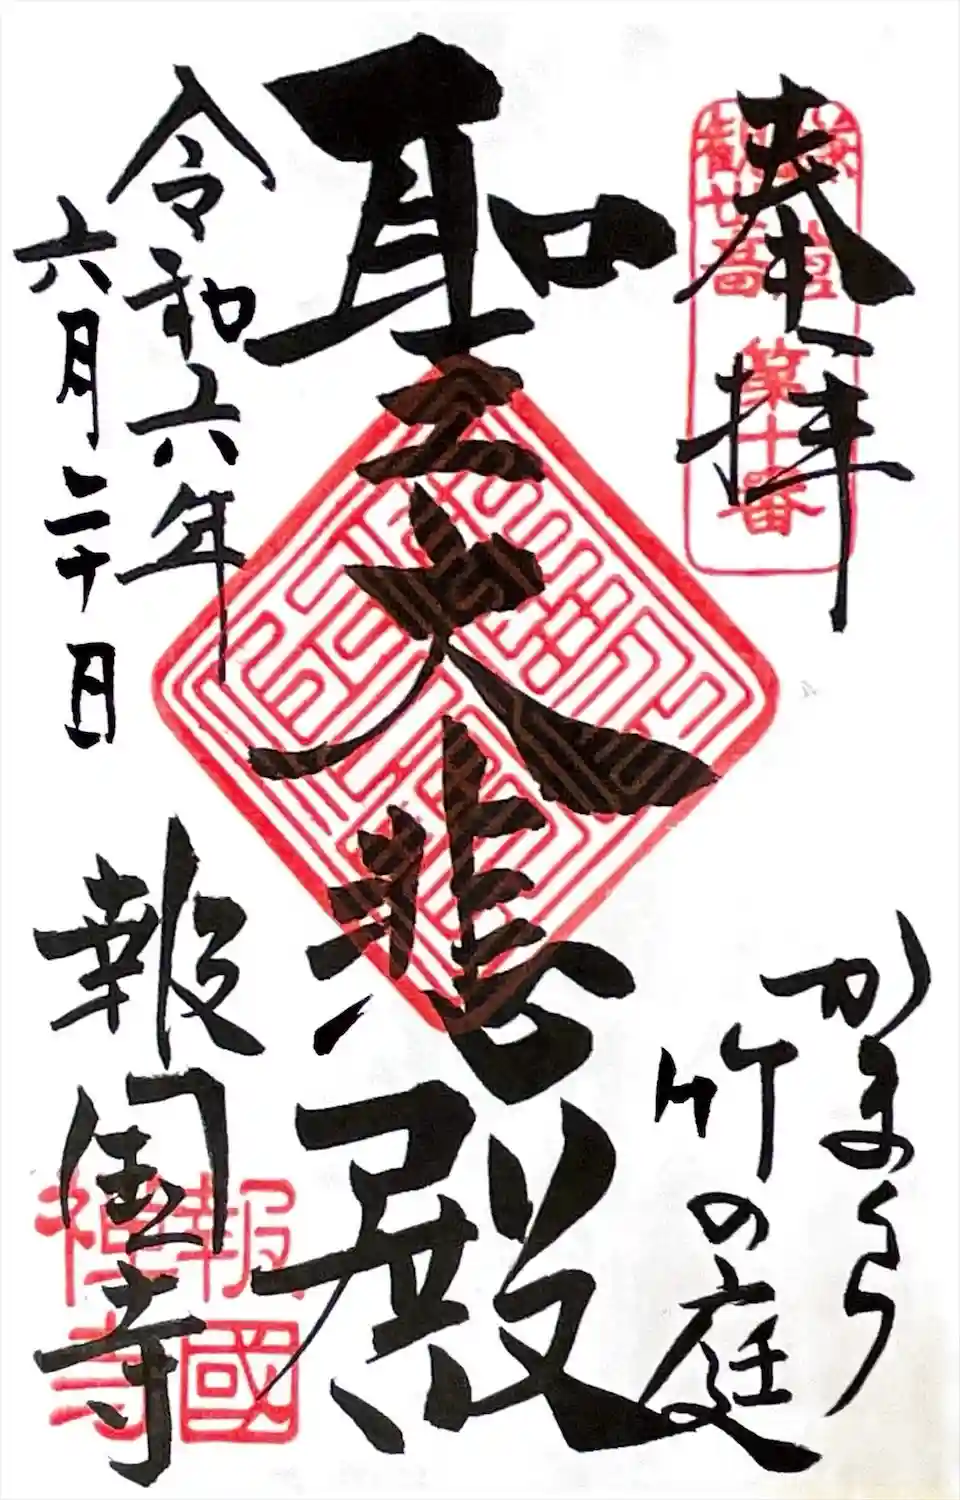 奉拝
鎌倉
観音
廿三
第十番
かまくら
竹の庭
聖大悲殿
令和六年
六月二十日
報国寺
報國
禅寺